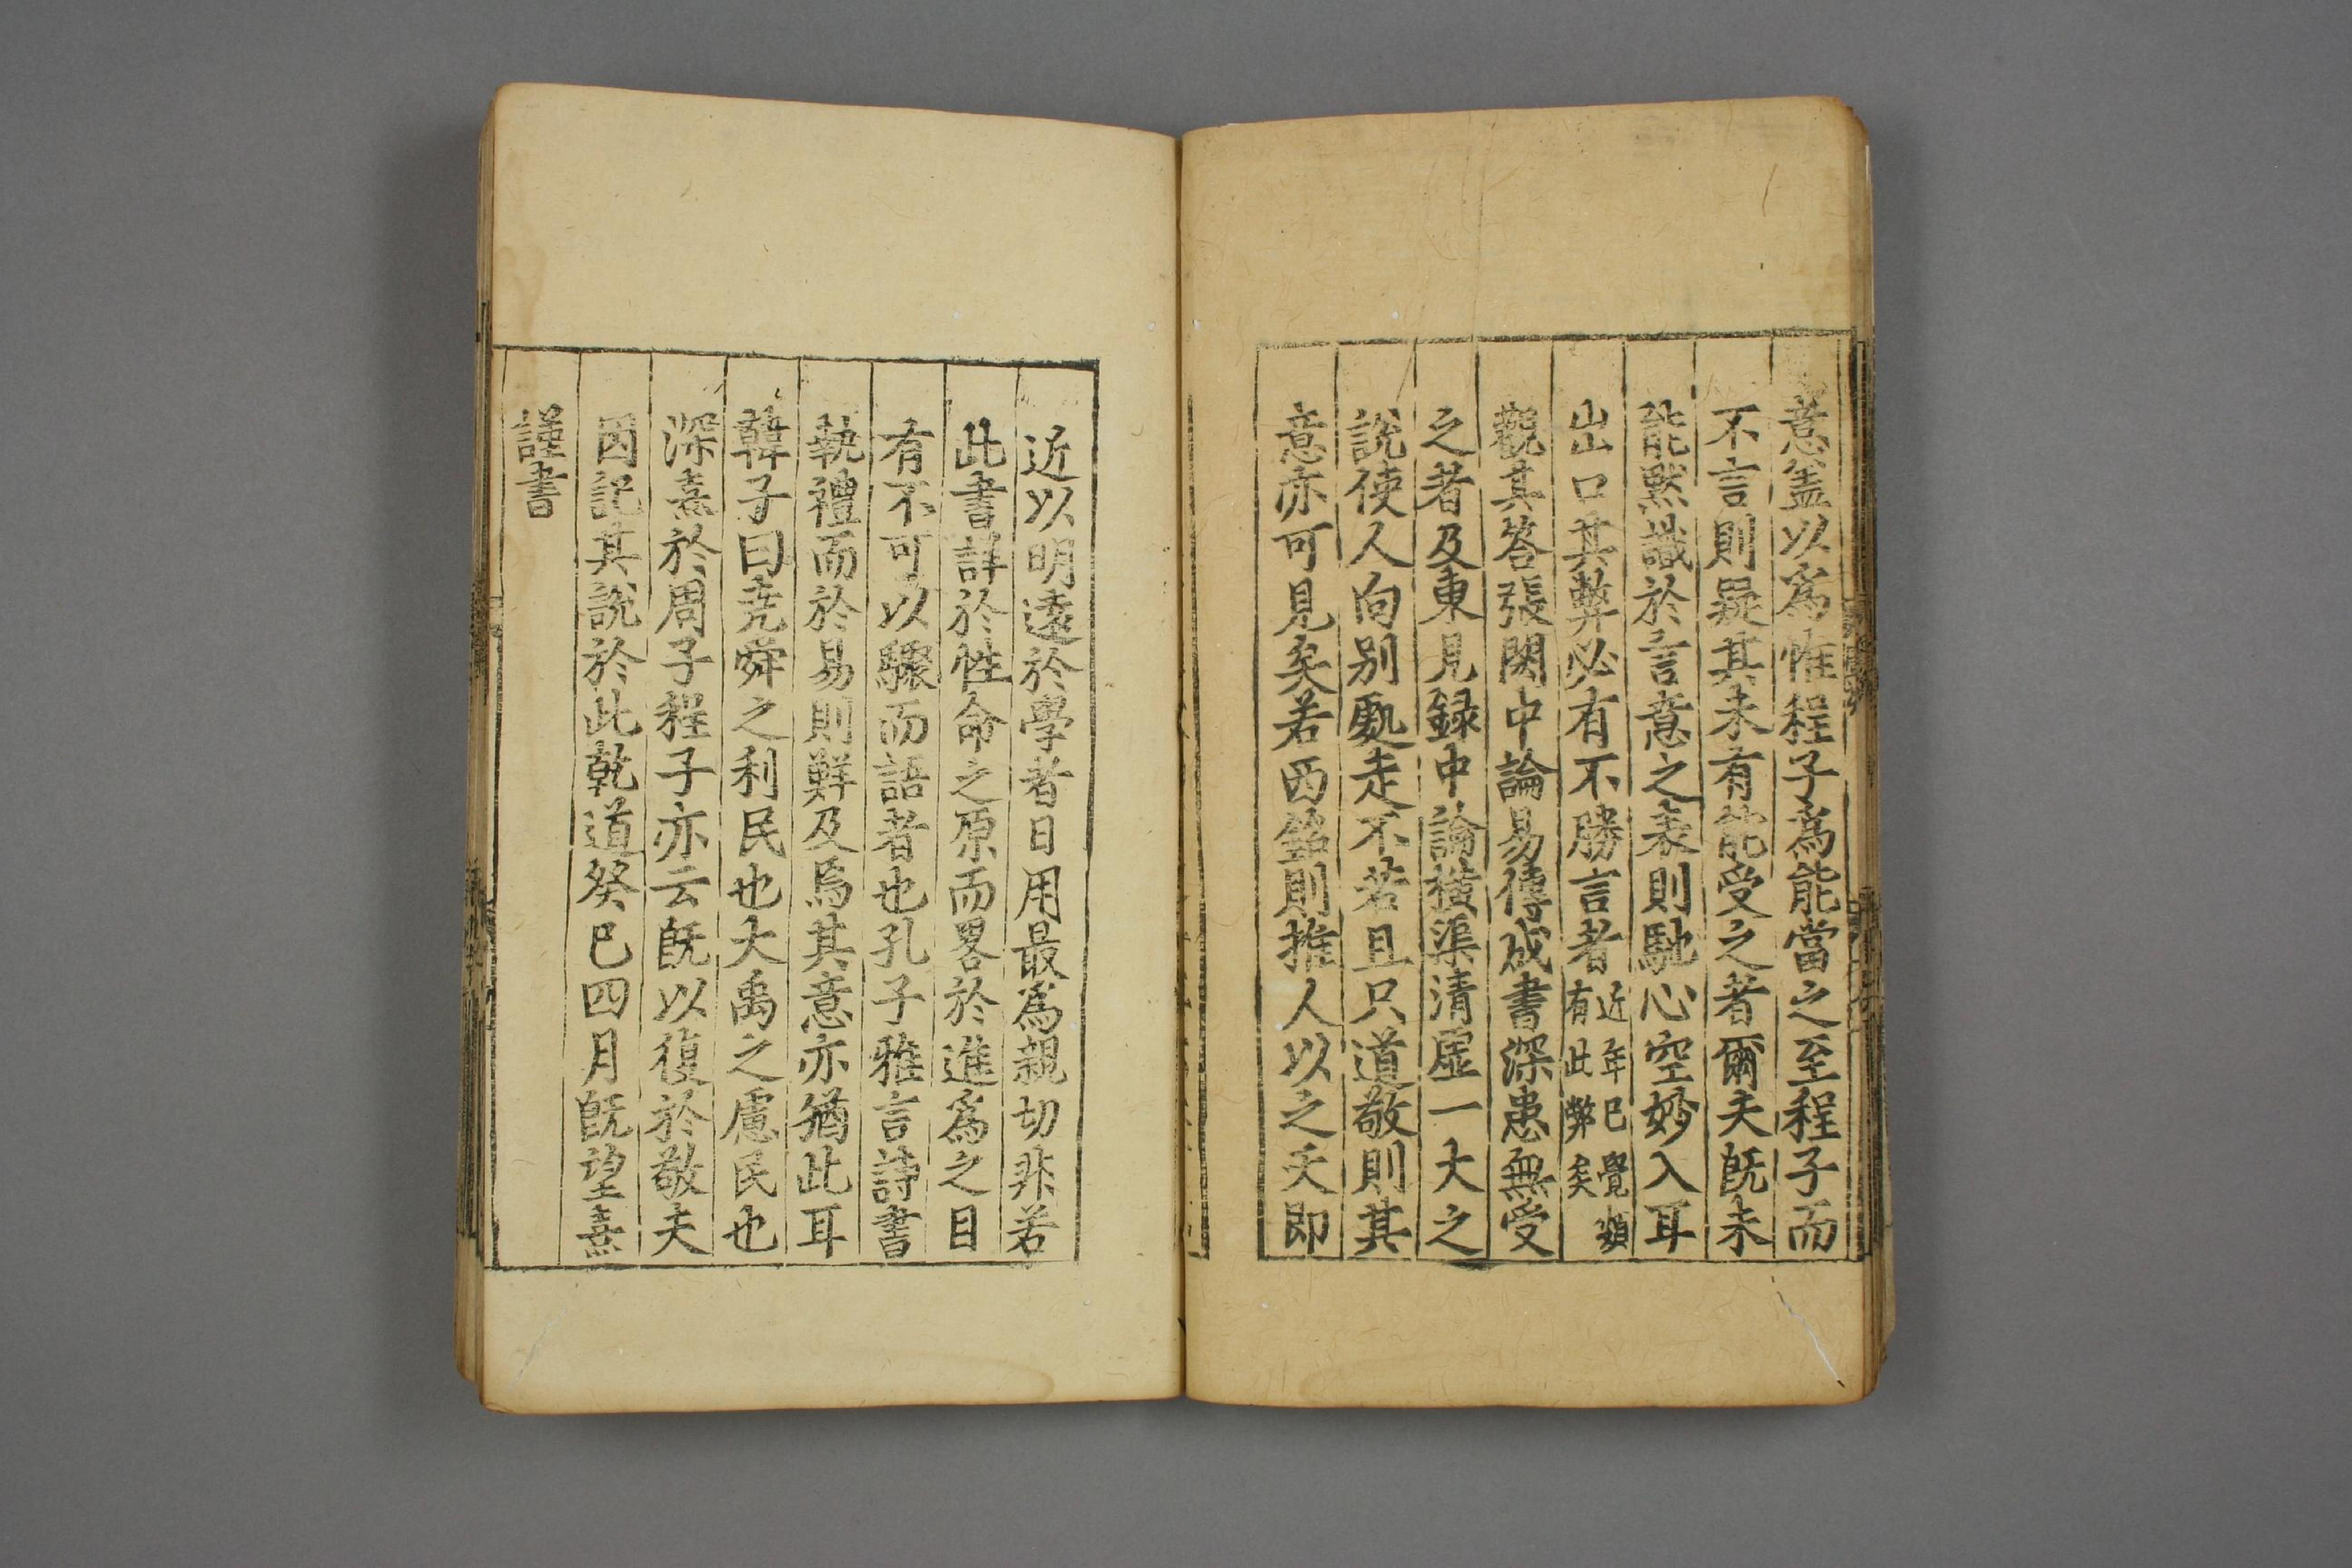 意盖以爲惟程子爲能當之至程子而
不言則疑其未有能受之者爾夫旣未
能默識於言意之表則馳心空妙入耳
出口其弊必有不勝言者近年已覺頗有此弊矣
觀其答張閎中論易傳成書深患無受
之者及東見録中論橫渠清虛一大之
說使人向别處走不若且只道敬則其
意亦可見矣若西銘則推人以之天即
近以明逺於學者日用最爲親切非若
此書詳於性命之原而畧於進爲之目
有不可以驟而語者也孔子雅言詩書
執禮而於易則鮮及焉其意亦猶此耳
韓子曰堯舜之利民也大禹之慮民也
深熹於周子程子亦云旣以復於敬夫
因記其說於此乾道癸巳四月旣望熹
謹書